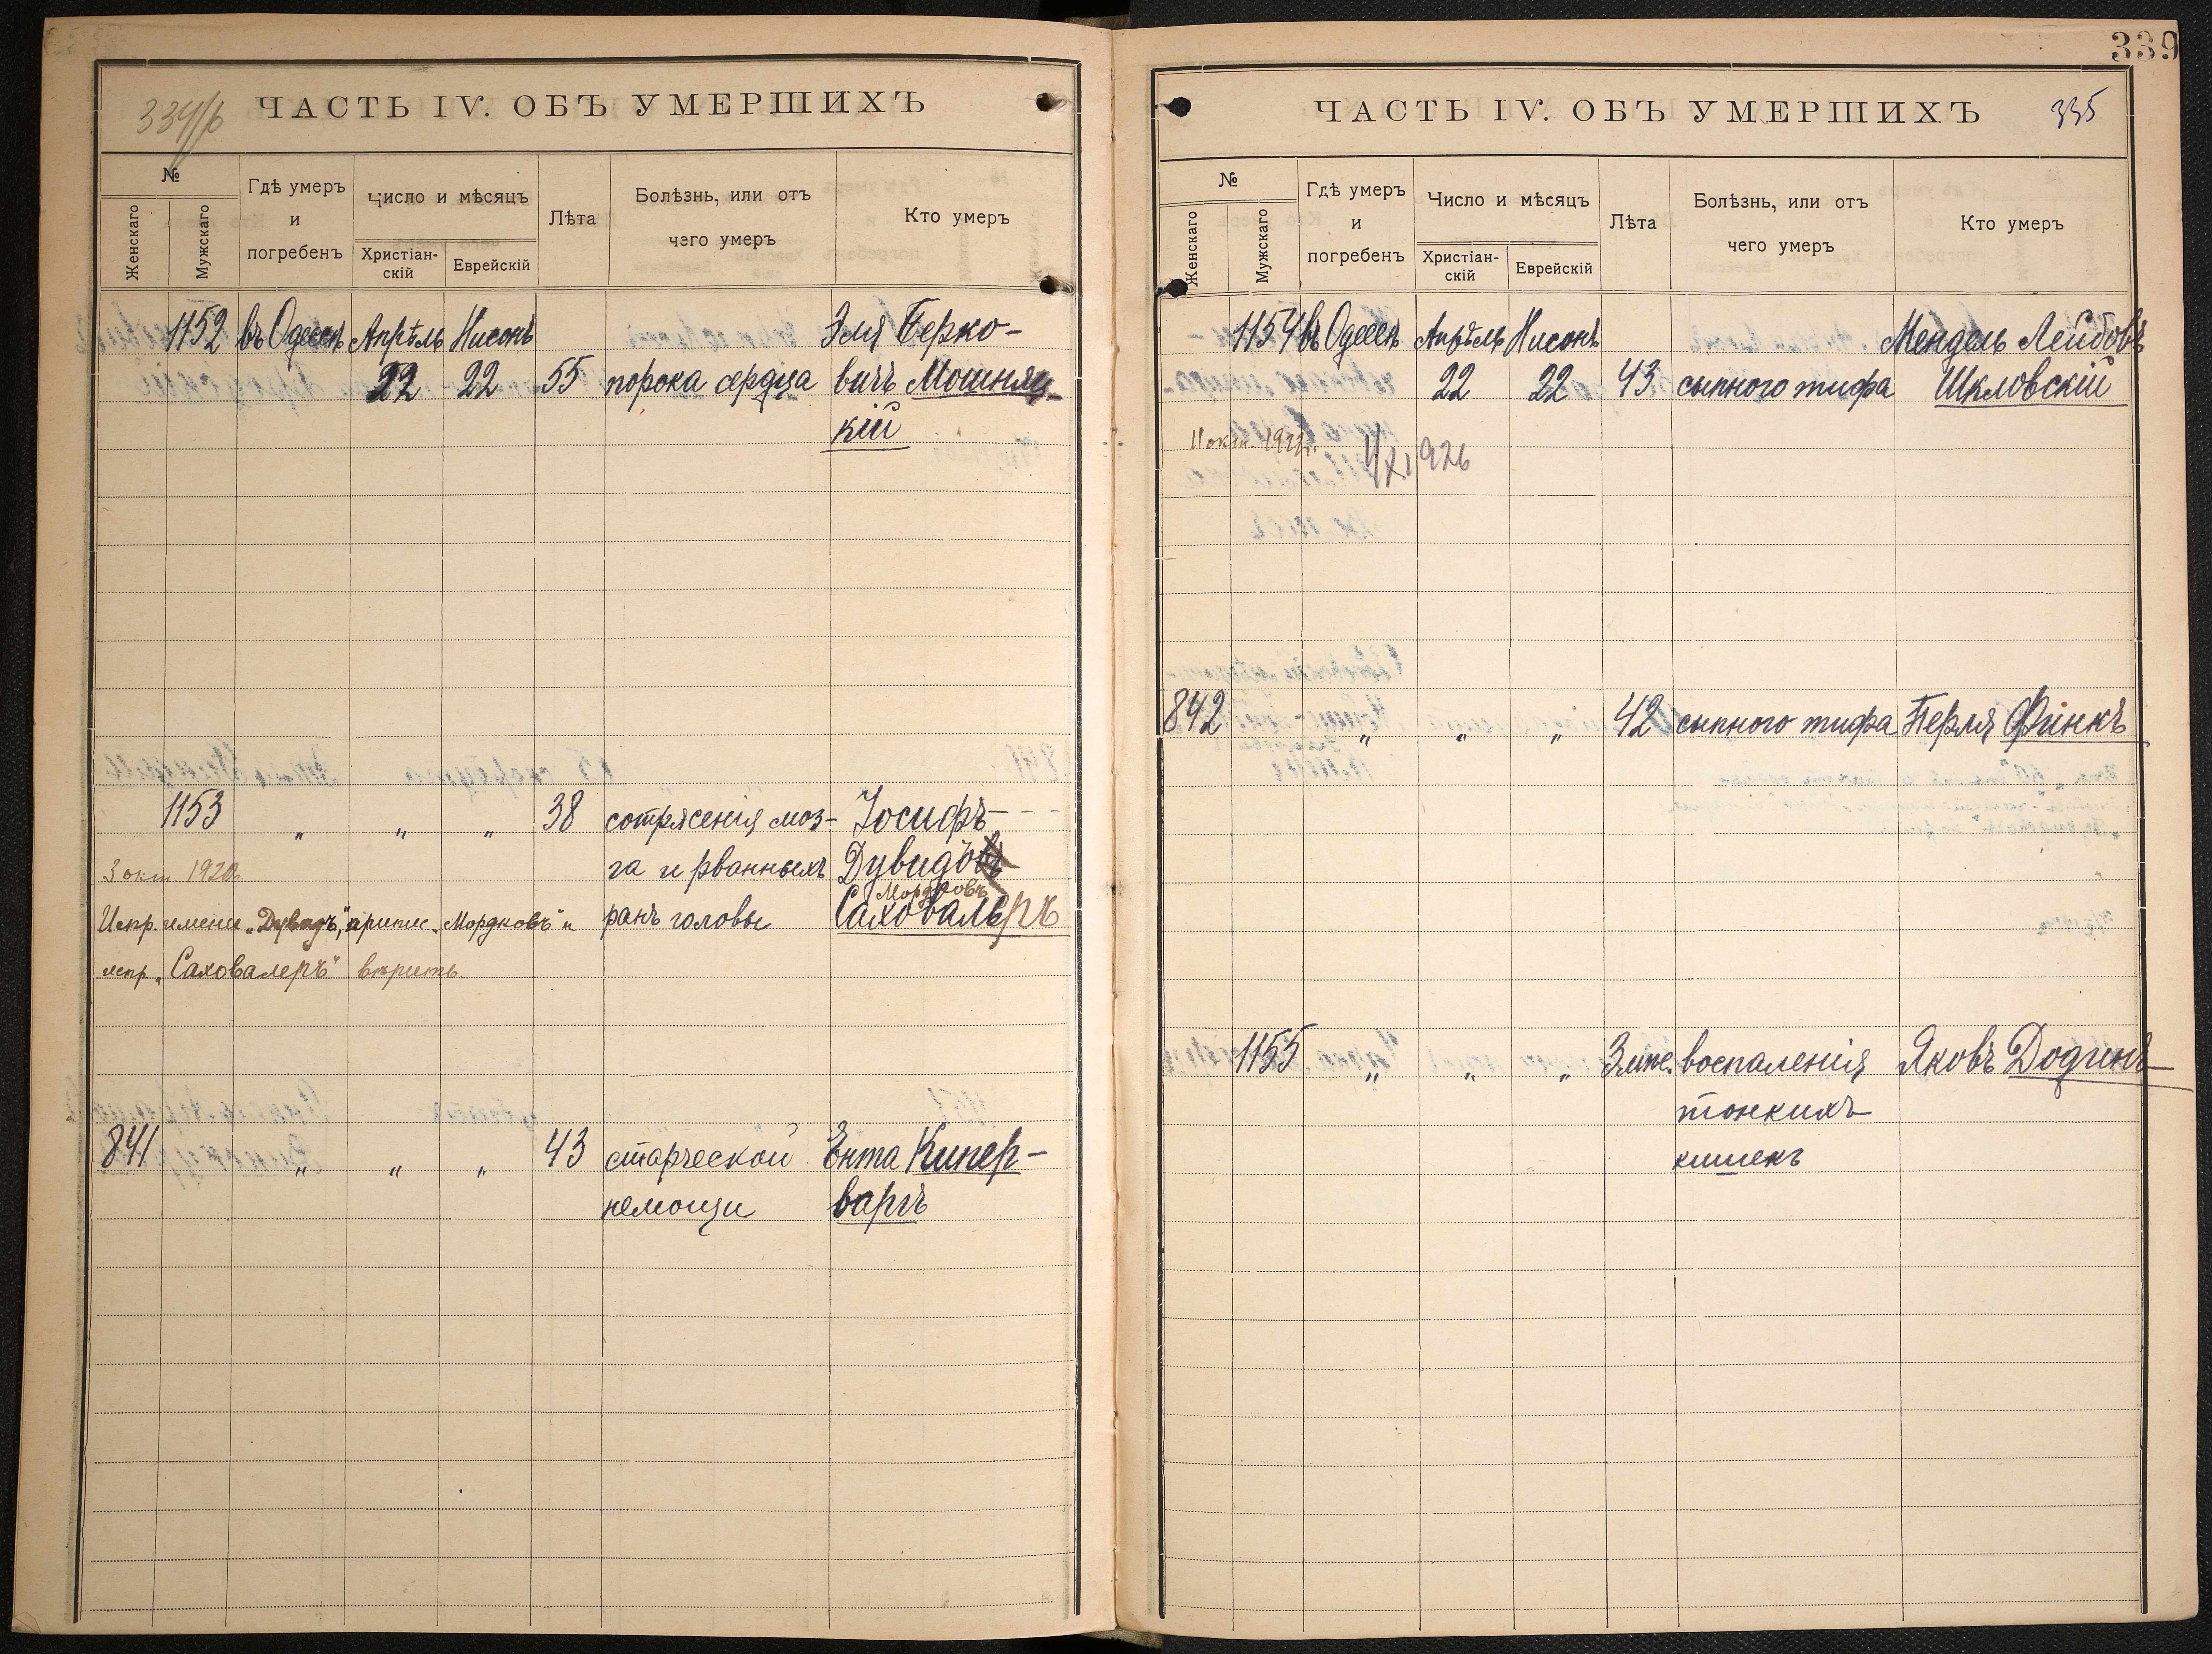 334/б ЧАСТЬ IV. ОБЪ УМЕРШИХЪ
№
Женскаго
Мужскаго
Гдѣ умеръ
и
погребенъ
Число и мѣсяцъ
Христіан-
скій
Еврейскій
Лѣта
Болѣзнь, или отъ
чего умеръ
Кто умеръ
1152 въ Одессѣ Апрѣль Нисонъ Эля Берко-
22 22 55 порока сердца вичъ Мошняц-
кій
1153 „ „ „ 38 сотрясенія моз- Іосифъ
3 окт 1920. га и рванныхъ Дувидовъ
Мордковъ
Испр. имени „Дувидъ", припис. „Мордковъ" и ранъ головы Саховалеръ
испр. „Саховалеръ" вѣрить
841 „ „ „ 43 старческой Ента Кипер-
немощи варгъ
339
ЧАСТЬ IV. ОБЪ УМЕРШИХЪ 335
№
Женскаго
Мужскаго
Гдѣ умеръ
и
погребенъ
Число и мѣсяцъ
Христіан-
скій
Еврейскій
Лѣта
Болѣзнь, или отъ
чего умеръ
Кто умеръ
1154 въ Одессѣ Апрѣль Нисонъ Мендель Лейбовъ
22 22 43 сыпного тифа Шкловскій
11 окт.
XI 926
842 „ „ „ 42 сыпного тифа Перля Финкъ
1155 „ „ „ 3 мѣс. воспаленія Яковъ Додинъ
тонкихъ
кишекъ